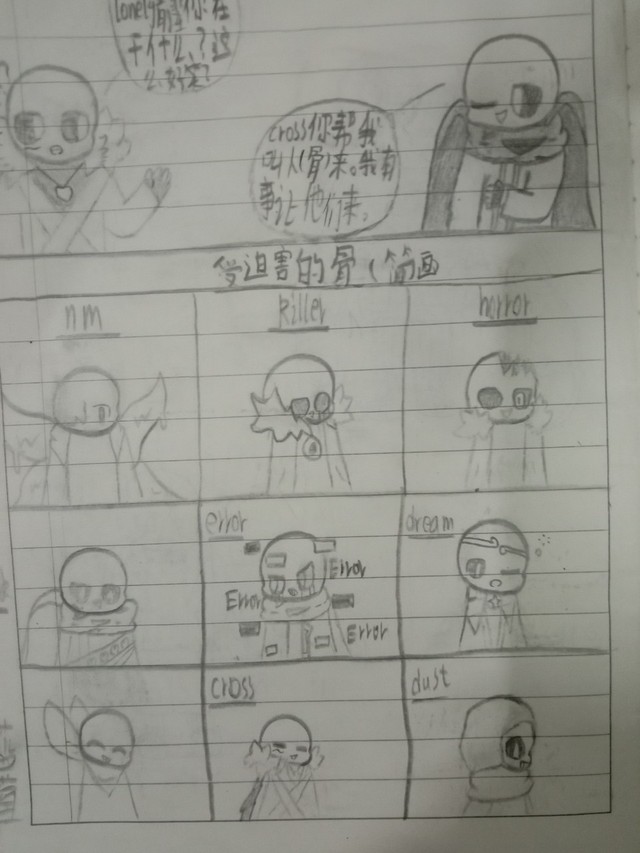 lonely前辈你在
干什么？这
么好笑？
cross你帮我
叫人(骨)来。我有
事让他们来。
受迫害的骨(简画
nm
killer
horror
error
dream
Error
Error
Error
cross
dust